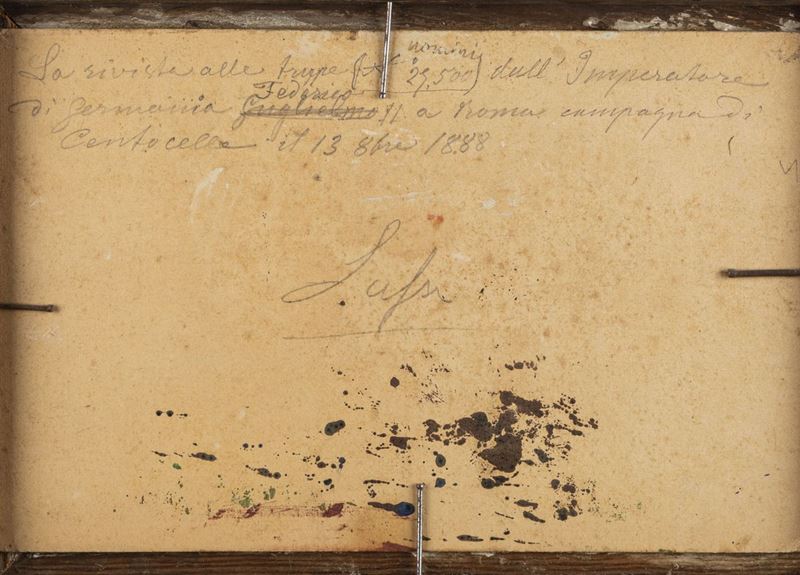 uomini
La rivista alle trupe (N° 25,500) dall' Imperatore
Federico
di Germania Guglielmo II. a Roma campagna di
Centocelle il 13 8bre 1888